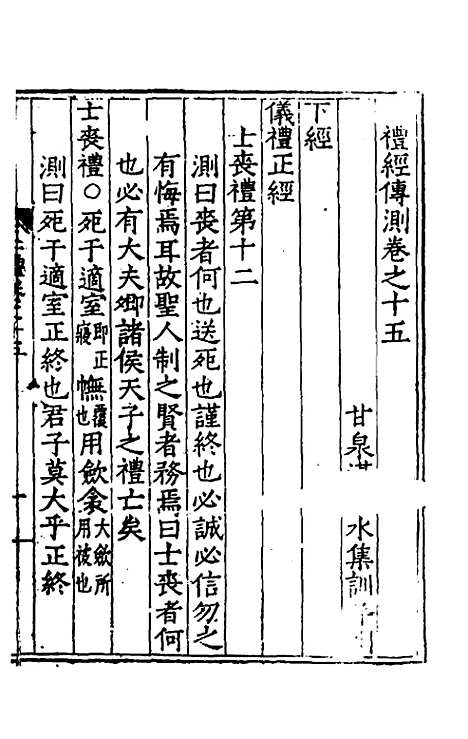 禮經傳測卷之十五
甘泉湛 水集訓
下經
儀禮正經
士喪禮第十二
測曰喪者何也送死也謹終也必誠必信勿之
有悔焉耳故聖人制之賢者務焉曰士喪者何
也必有大夫卿諸侯天子之禮亡矣
士喪禮○死于適室即正寢幠覆也用歛衾大歛所用被也
測曰死于適室正終也君子莫大乎正終